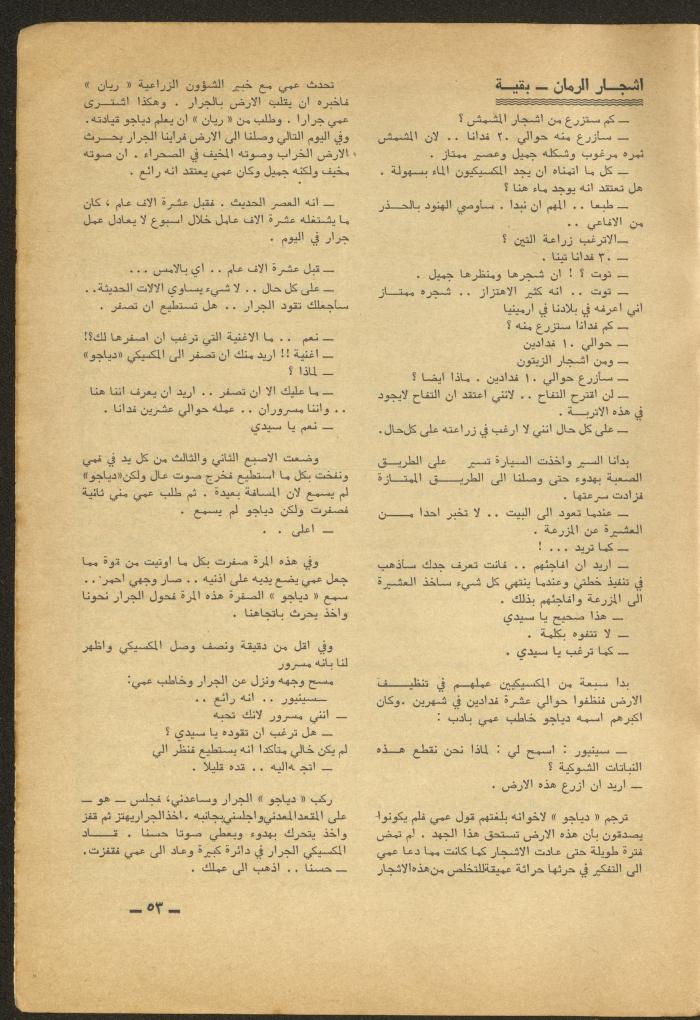 اشجـار الرمان ــ بقيـة
ــ كم ستزرع من اشجار المشمش ؟
ــ سأزرع منه حوالي ٢٠ فدانا . . لان المشمش
ثمره مرغوب وشكله جميل وعصير ممتاز .
ــ كل ما اتمناه ان يجد المكسيكيون الماء بسهولة .
هل تعتقد انه يوجد ماء هنا ؟
ــ طبعا . . المهم ان نبدا . ساوصي الهنود بالحـذر
من الافاعي . .
ــ الاترغب زراعة التين ؟
ــ ٣٠ فدانا تينا .
ــ توت ؟ ! ان شجرها ومنظرها جميل .
ــ توت . . انه كثير الاهتزاز . . شجره ممتـاز
اني اعرفه في بلادنا في ارمينيا
ــ كم فدانا ستزرع منه ؟
ــ حوالي ١٠ فدادين
ــ ومن اشجار الزيتون
ــ سأزرع حوالي ١٠ فدادين . ماذا ايضا ؟
ــ لن اقترح التفاح . . لانني اعتقد ان التفاح لايجود
في هذه الاتربـة .
ــ على كل حال انني لا ارغب في زراعته على كل حال.
بدانا السير واخذت السيارة تسير على الطريـق
الصعبة بهدوء حتى وصلنا الى الطريـــق الممتـازة
فزادت سرعتها .
ــ عندما تعود الى البيت . . لا تخبر احدا مــن
العشيرة عن المزرعة .
ــ كما تريد . . . !
ــ اريد ان افاجئهم . . فانت تعرف جدك ساذهب
في تنفيذ خطتي وعندما ينتهي كل شيء ساخذ العشيرة
الى المزرعة وافاجئهم بذلك .
ــ هذا صحيح يا سيدي
ــ لا تتفوه بكلمة .
ــ كما ترغب يا سيدي .
بدا سبعة من المكسيكيين عملهـم في تنظيـف
الارض فنظفوا حوالي عشرة فدادين في شهرين .وكان
اكبرهم اسمه دياجو خاطب عمي بادب :
ــ سينيور : اسمح لي : لماذا نحن نقطع هـذه
النباتات الشوكية ؟
ــ اريد ان ازرع هذه الارض .
ترجم « دياجو » لاخوانه بلغتهم قول عمي فلم يكونوا
يصدقون بان هذه الارض تستحق هذا الجهد . لم تمض
فترة طويلة حتى عادت الاشجار كما كانت مما دعا عمي
الى التفكير في حرثها حراثة عميقة للتخلص من هذه الاشجار
تحدث عمي مع خبير الشؤون الزراعية « ريان »
فاخبره ان يقلب الارض بالجرار . وهكذا اشتـرى
عمي جرارا . وطلب من « ريان » ان يعلم دياجو قيادته.
وفي اليوم التالي وصلنا الى الارض فراينا الجرار يحـرث
الارض الخراب وصوته المخيف في الصحراء . ان صوته
مخيف ولكنه جميل وكان عمي يعتقد انه رائع .
ــ انه العصر الحديث . فقبل عشرة الاف عام ، كان
ما يشتغله عشرة الاف عامل خلال اسبوع لا يعادل عمل
جرار في اليوم .
ــ قبل عشرة الاف عام . . اي بالامس . . .
ــ على كل حال . . لا شيء يساوي الالات الحديثة. .
ساجعلك تقود الجرار . . هل تستطيع ان تصفر .
ــ نعم . . ما الاغنية التي ترغب ان اصفرها لك؟!
ــ اغنية !! اريد منك ان تصفر الى المكسيكي «دياجو»
ــ لماذا ؟
ــ ما عليك الا ان تصفر . . اريد ان يعرف اننا هنا
. . واننا مسروران . . عمله حوالي عشرين فدانا .
ــ نعم يا سيدي
وضعت الاصبع الثاني والثالث من كل يد في فمي
ونفخت بكل ما استطيع فخرج صوت عال ولكن«دياجو»
لم يسمع لان المسافة بعيدة . ثم طلب عمي مني ثانية
فصفرت ولكن دياجو لم يسمع .
ــ اعلى . .
وفي هذه المرة صفرت بكل ما اوتيت من قوة مما
جعل عمي يضع يديه على اذنيه . . صار وجهي احمر . .
سمع « دياجو » الصفرة هذه المرة فحول الجرار نحونا
واخذ يحرث باتجاهنا .
وفي اقل من دقيقة ونصف وصل المكسيكي واظهر
لنا بانه مسرور
مسح وجهه ونزل عن الجرار وخاطب عمي:
ــسينيور . . انه رائع . .
ــ انني مسرور لانك تحبه
ــ هل ترغب ان تقوده يا سيدي ؟
لم يكن خالي متاكدا انه يستطيع فنظر الي
ــ اتجه اليه . . قده قليلا .
ركب « دياجو » الجرار وساعدني، فجلس ــ هو ــ
على المقعد المعدني واجلسني بجانبه . اخذ الجرار يهتز ثم قفز
واخذ يتحرك بهدوء ويعطي صوتا حسنا . قــاد
المكسيكي الجرار في دائرة كبيرة وعاد الى عمي فقفزت.
ــ حسنا . . اذهب الى عملك .
ــ ٥٣ ــ